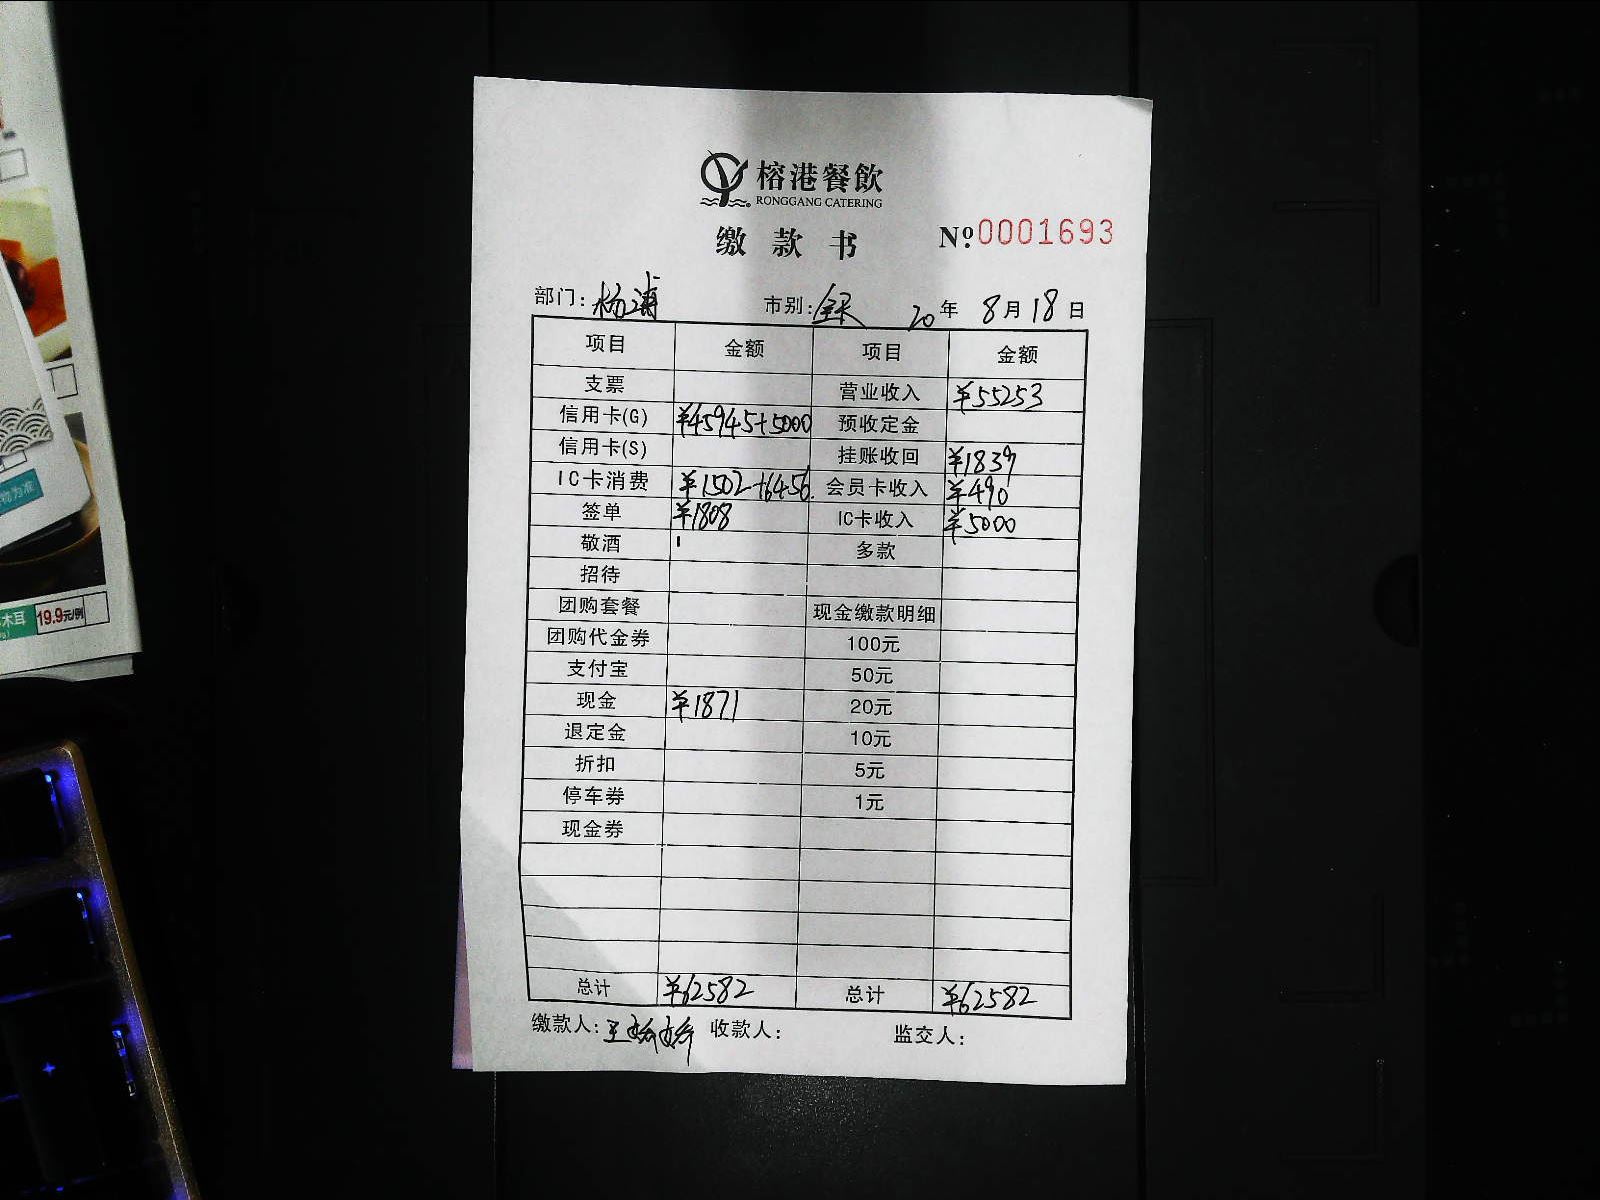 榕港餐飲
RONGGANG CATERING
缴款书 Nº:0001693
部门:杨浦 市别:全天 20年 8月18日
项目 金额 项目 金额
支票 营业收入 ¥55253
信用卡(G) ¥45945+5000 预收定金
信用卡(S) 挂账收回 ¥1839
IC卡消费 ¥1502+6456. 会员卡收入 ¥490
签单 ¥1808 IC卡收入 ¥5000
敬酒 多款
招待
团购套餐 现金缴款明细
团购代金券 100元
支付宝 50元
现金 ¥1871 20元
退定金 10元
折扣 5元
停车券 1元
现金券
总计 ¥62582 总计 ¥62582
缴款人:王 收款人: 监交人:
木耳 19.9元/例
物为准